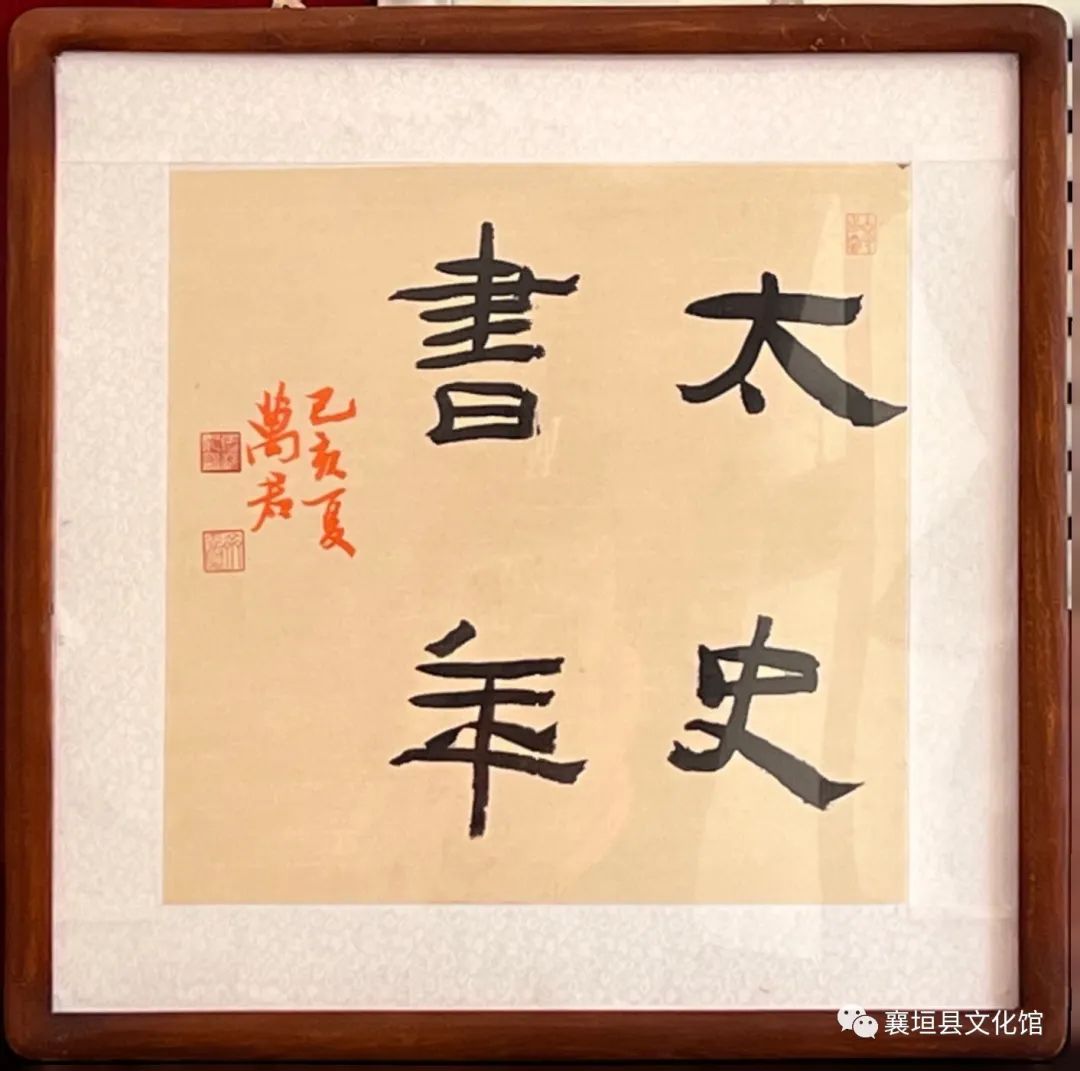 太史
書年
己亥夏
萬君
襄垣县文化馆